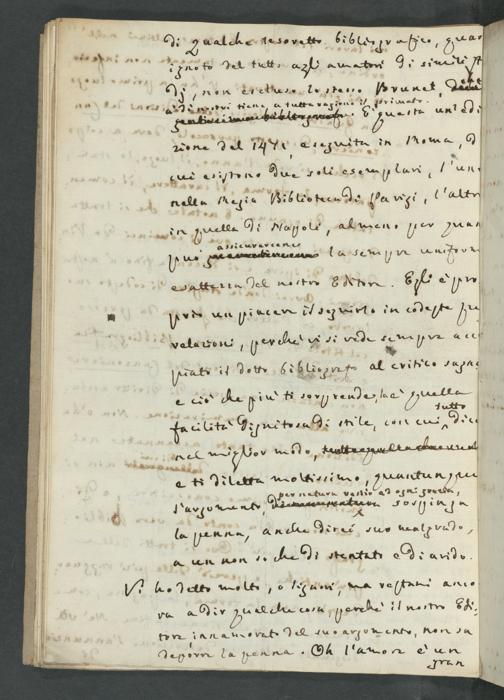 di qualche tesoretto bibliografico, quasi
ignoto del tutto agli amatori di simili st
di, non escluso lo stesso Brunet,
a dì nostri tiene a tutta ragione il primato.
E' questa un' edi
zione del 1471, eseguita in Roma, d
cui esistono due soli esemplari, l'uno
nella Regia Biblioteca di Parigi, l'altro
in quella di Napoli, almeno per quan
assicurarcene
può la sempre uniform
esattezza del nostro Editore. Egli è pro
prio un piacere il seguirlo in codeste
velazioni, perchè vi si vede sempre acco
piato il dotto bibliografo al critico sagac
e ciò che più ti sorprende, è quella
tutto
facilità dignitosa di stile, con cui dice
nel miglior modo,
e ti diletta moltissimo, quantunque
per natura restio ad ogni grazia,
l'argomento, sospinga
la penna, anche direi suo malgrado,
a un non so che di stentato e di arido.
Vi ho detto molto, o signori, ma restami anco
ra a dir qualche cosa, perchè il nostro Edi
tore, innamorato del suo argomento, non sa
deporre la penna. Oh l'amore è un
gran